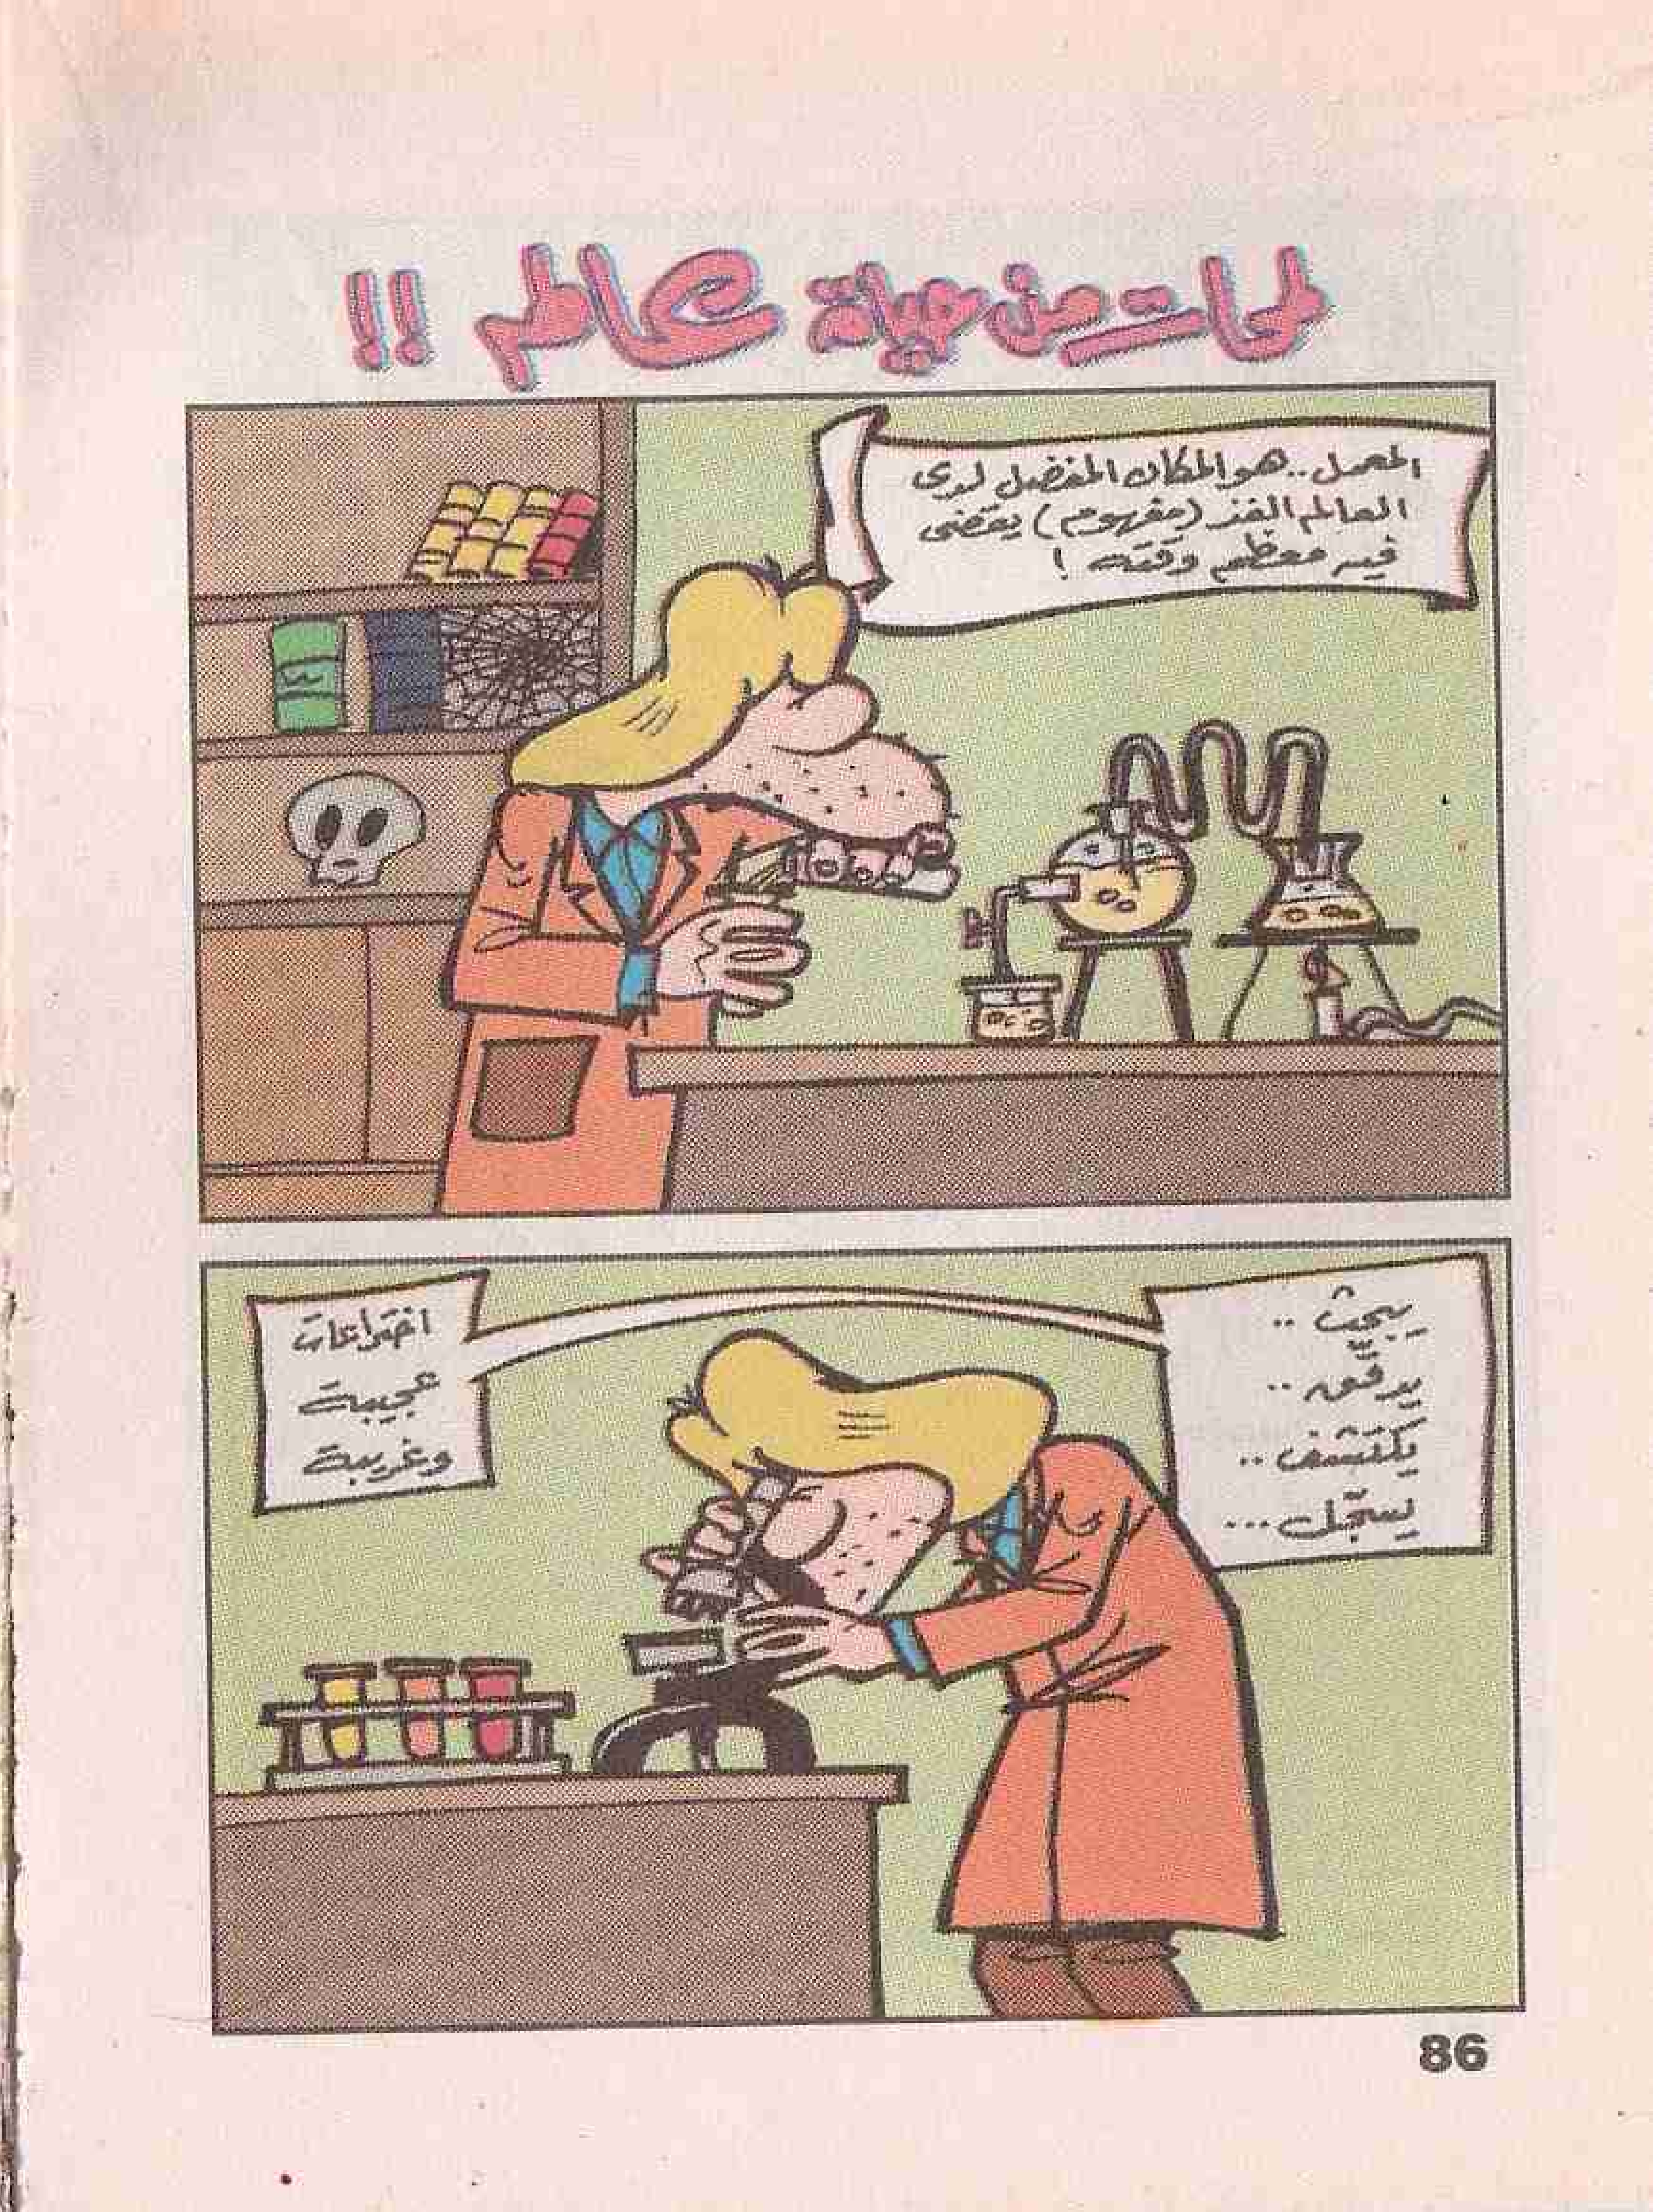 لمحات من حياة عالم !!
المعمل .. هو المكان المفضل لدى
العالم الفذ (مفهوم) يقضى
فيه معظم وقته !
يبحث ..
يدقّق ..
يكتشف ..
يسجّل ...
اختراعات
عجيبة
وغريبة
86